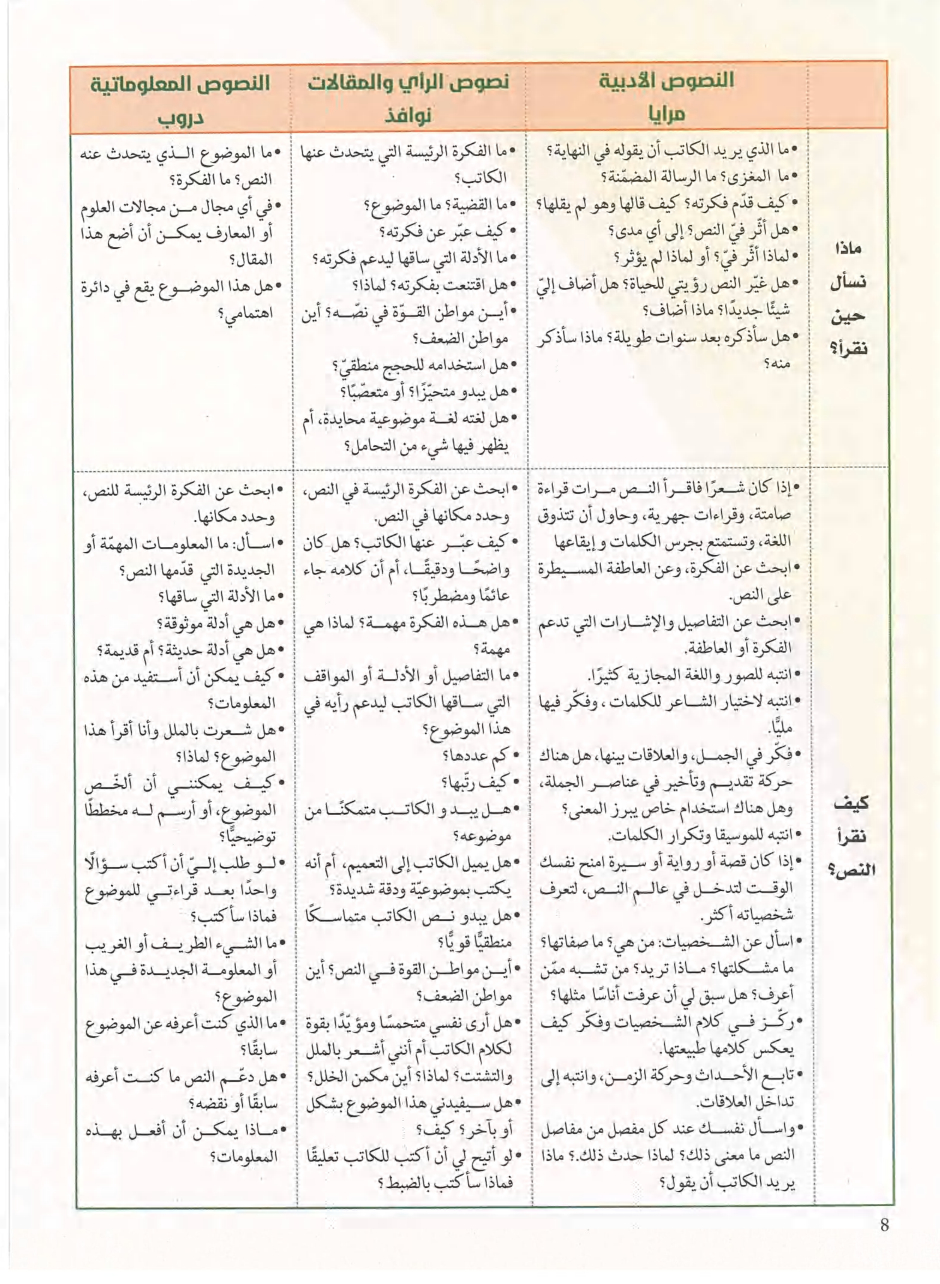 النصوص الأدبية
مرايا
نصوص الرأي والمقالات
نوافذ
النصوص المعلوماتية
دروب
ماذا
نسأل
حين
نقرأ؟
•ما الذي يريد الكاتب أن يقوله في النهاية؟
•ما المغزى؟ ما الرسالة المضمّنة؟
•كيف قدّم فكرته؟ كيف قالها وهو لم يقلها؟
•هل أثّر فيّ النص؟ إلى أي مدى؟
•لماذا أثّر فيّ؟ أو لماذا لم يؤثر؟
•هل غيّر النص رؤيتي للحياة؟ هل أضاف إليّ
شيئًا جديدًا؟ ماذا أضاف؟
•هل سأذكره بعد سنوات طويلة؟ ماذا سأذكر
منه؟
•ما الفكرة الرئيسة التي يتحدث عنها
الكاتب؟
•ما القضية؟ ما الموضوع؟
•كيف عبّر عن فكرته؟
•ما الأدلة التي ساقها ليدعم فكرته؟
•هل اقتنعت بفكرته؟ لماذا؟
•أين مواطن القوّة في نصّه؟ أين
مواطن الضعف؟
•هل استخدامه للحجج منطقيّ؟
•هل يبدو متحيّزًا؟ أو متعصّبًا؟
•هل لغته لغة موضوعية محايدة، أم
يظهر فيها شيء من التحامل؟
•ما الموضوع الذي يتحدث عنه
النص؟ ما الفكرة؟
•في أي مجال من مجالات العلوم
أو المعارف يمكن أن أضع هذا
المقال؟
•هل هذا الموضوع يقع في دائرة
اهتمامي؟
كيف
نقرأ
النص؟
•إذا كان شعرًا فاقرأ النص مرات قراءة
صامتة، وقراءات جهرية، وحاول أن تتذوق
اللغة، وتستمتع بجرس الكلمات وإيقاعها
•ابحث عن الفكرة، وعن العاطفة المسيطرة
على النص.
•ابحث عن التفاصيل والإشارات التي تدعم
الفكرة أو العاطفة.
•انتبه للصور واللغة المجازية كثيرًا.
•انتبه لاختيار الشاعر للكلمات، وفكّر فيها
مليًّا.
•فكّر في الجمل، والعلاقات بينها، هل هناك
حركة تقديم وتأخير في عناصر الجملة،
وهل هناك استخدام خاص يبرز المعنى؟
•انتبه للموسيقا وتكرار الكلمات.
•إذا كان قصة أو رواية أو سيرة امنح نفسك
الوقت لتدخل في عالم النص، لتعرف
شخصياته أكثر.
•اسأل عن الشخصيات: من هي؟ ما صفاتها؟
ما مشكلتها؟ ماذا تريد؟ من تشبه ممّن
أعرف؟ هل سبق لي أن عرفت أناسًا مثلها؟
•ركّز في كلام الشخصيات وفكّر كيف
يعكس كلامها طبيعتها.
•تابع الأحداث وحركة الزمن، وانتبه إلى
تداخل العلاقات.
•واسأل نفسك عند كل مفصل من مفاصل
النص ما معنى ذلك؟ لماذا حدث ذلك.؟ ماذا
يريد الكاتب أن يقول؟
•ابحث عن الفكرة الرئيسة في النص،
وحدد مكانها في النص.
•كيف عبّر عنها الكاتب؟ هل كان
واضحًا ودقيقًا، أم أن كلامه جاء
عائمًا ومضطربًا؟
•هل هذه الفكرة مهمة؟ لماذا هي
مهمة؟
•ما التفاصيل أو الأدلة أو المواقف
التي ساقها الكاتب ليدعم رأيه في
هذا الموضوع؟
•كم عددها؟
•كيف رتّبها؟
•هل يبدو الكاتب متمكنًا من
موضوعه؟
•هل يميل الكاتب إلى التعميم، أم أنه
يكتب بموضوعيّة ودقة شديدة؟
•هل يبدو نص الكاتب متماسكًا
منطقيًّا قويًّا؟
•أين مواطن القوة في النص؟ أين
مواطن الضعف؟
•هل أرى نفسي متحمسًا ومؤيّدًا بقوة
لكلام الكاتب أم أنني أشعر بالملل
والتشتت؟ لماذا؟ أين مكمن الخلل؟
•هل سيفيدني هذا الموضوع بشكل
أو بآخر؟ كيف؟
•لو أتيح لي أن أكتب للكاتب تعليقًا
فماذا سأكتب بالضبط؟
•ابحث عن الفكرة الرئيسة للنص،
وحدد مكانها.
•اسأل: ما المعلومات المهمّة أو
الجديدة التي قدّمها النص؟
•ما الأدلة التي ساقها؟
•هل هي أدلة موثوقة؟
•هل هي أدلة حديثة؟ أم قديمة؟
•كيف يمكن أن أستفيد من هذه
المعلومات؟
•هل شعرت بالملل وأنا أقرأ هذا
الموضوع؟ لماذا؟
•كيف يمكنني أن ألخّص
الموضوع، أو أرسم له مخططًا
توضيحيًّا؟
•لو طلب إليّ أن أكتب سؤالًا
واحدًا بعد قراءتي للموضوع
فماذا سأكتب؟
•ما الشيء الطريف أو الغريب
أو المعلومة الجديدة في هذا
الموضوع؟
•ما الذي كنت أعرفه عن الموضوع
سابقًا؟
•هل دعّم النص ما كنت أعرفه
سابقًا أو نقضه؟
•ماذا يمكن أن أفعل بهذه
المعلومات؟
8